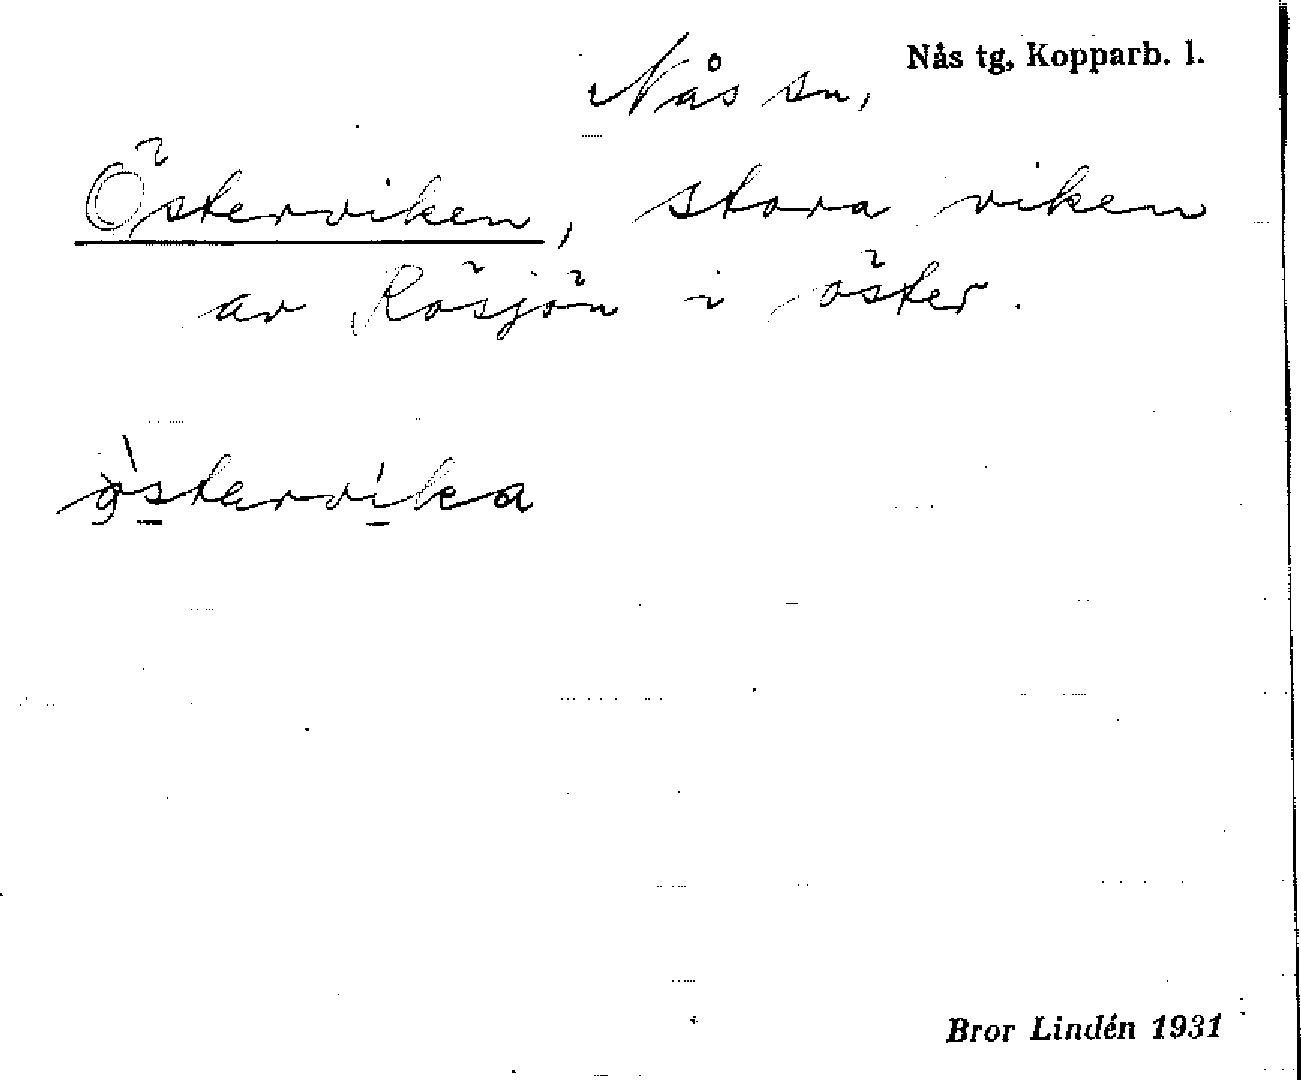 Nås tg, Kopparb. l.
Nås sn,
Österviken, stora viken
av Rösjön i öster.
östervika
Bror Lindén 1931